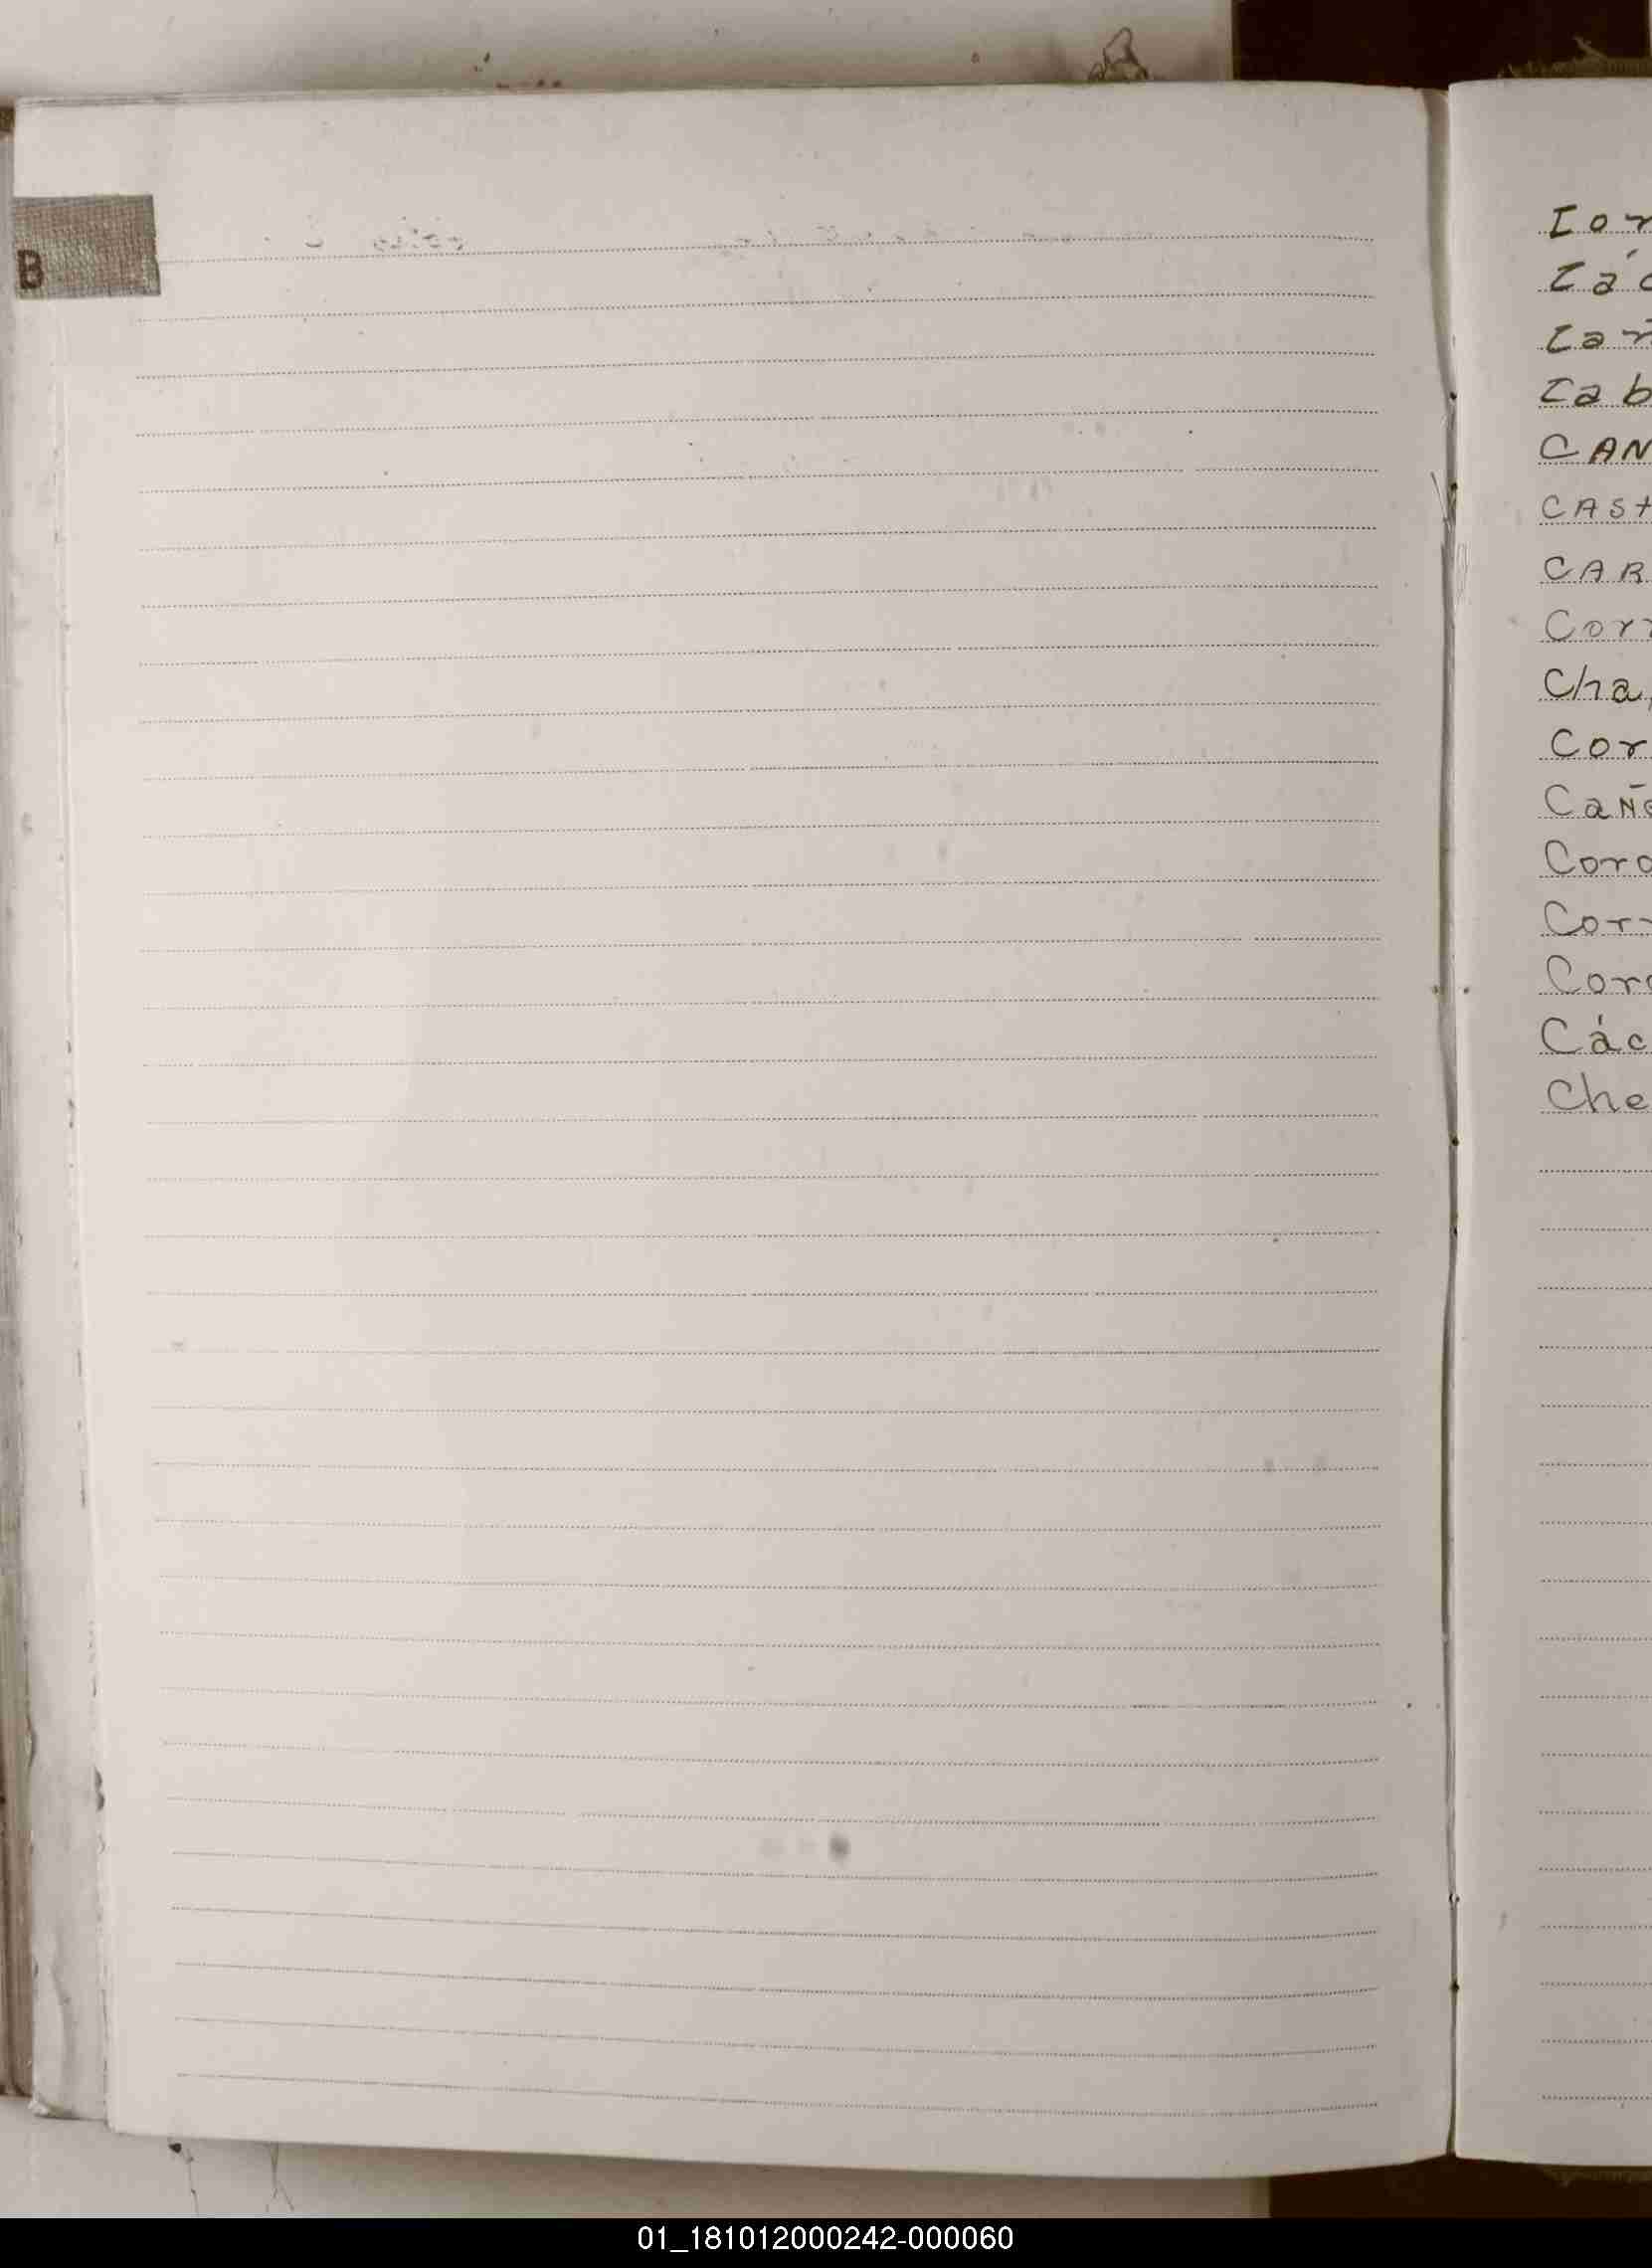 B
Cor
Các
Car
Cab
CAN
CAST
CAR
Corr
Cha
Cor
Cañ
Coro
Corr
Coro
Các
Che
01_181012000242-000060